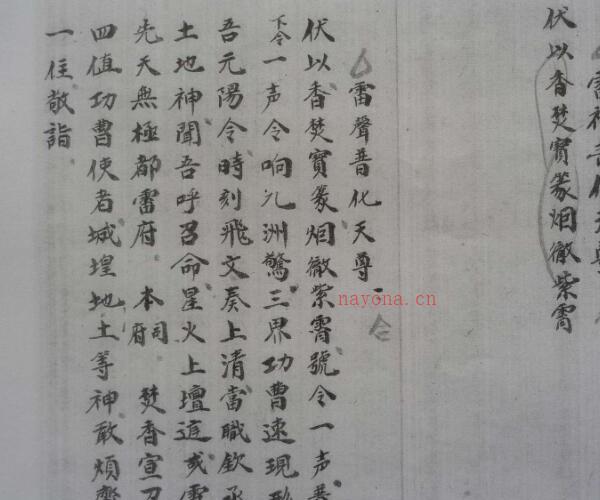 雷神普化天尊
伏以香焚寶篆烟徹紫霄
雷聲普化天尊
伏以香焚寶篆烟徹紫霄號令一声
下令一声令响九洲驚三界功曹速現
吾元陽令時刻飛文奏上清當職欽承
土地神聞吾呼召命星火上壇這或
先天無極都雷府 本司府 焚香宣召
四值功曹使者城堭地土等神敢煩
一住敬詣
nayona.cn